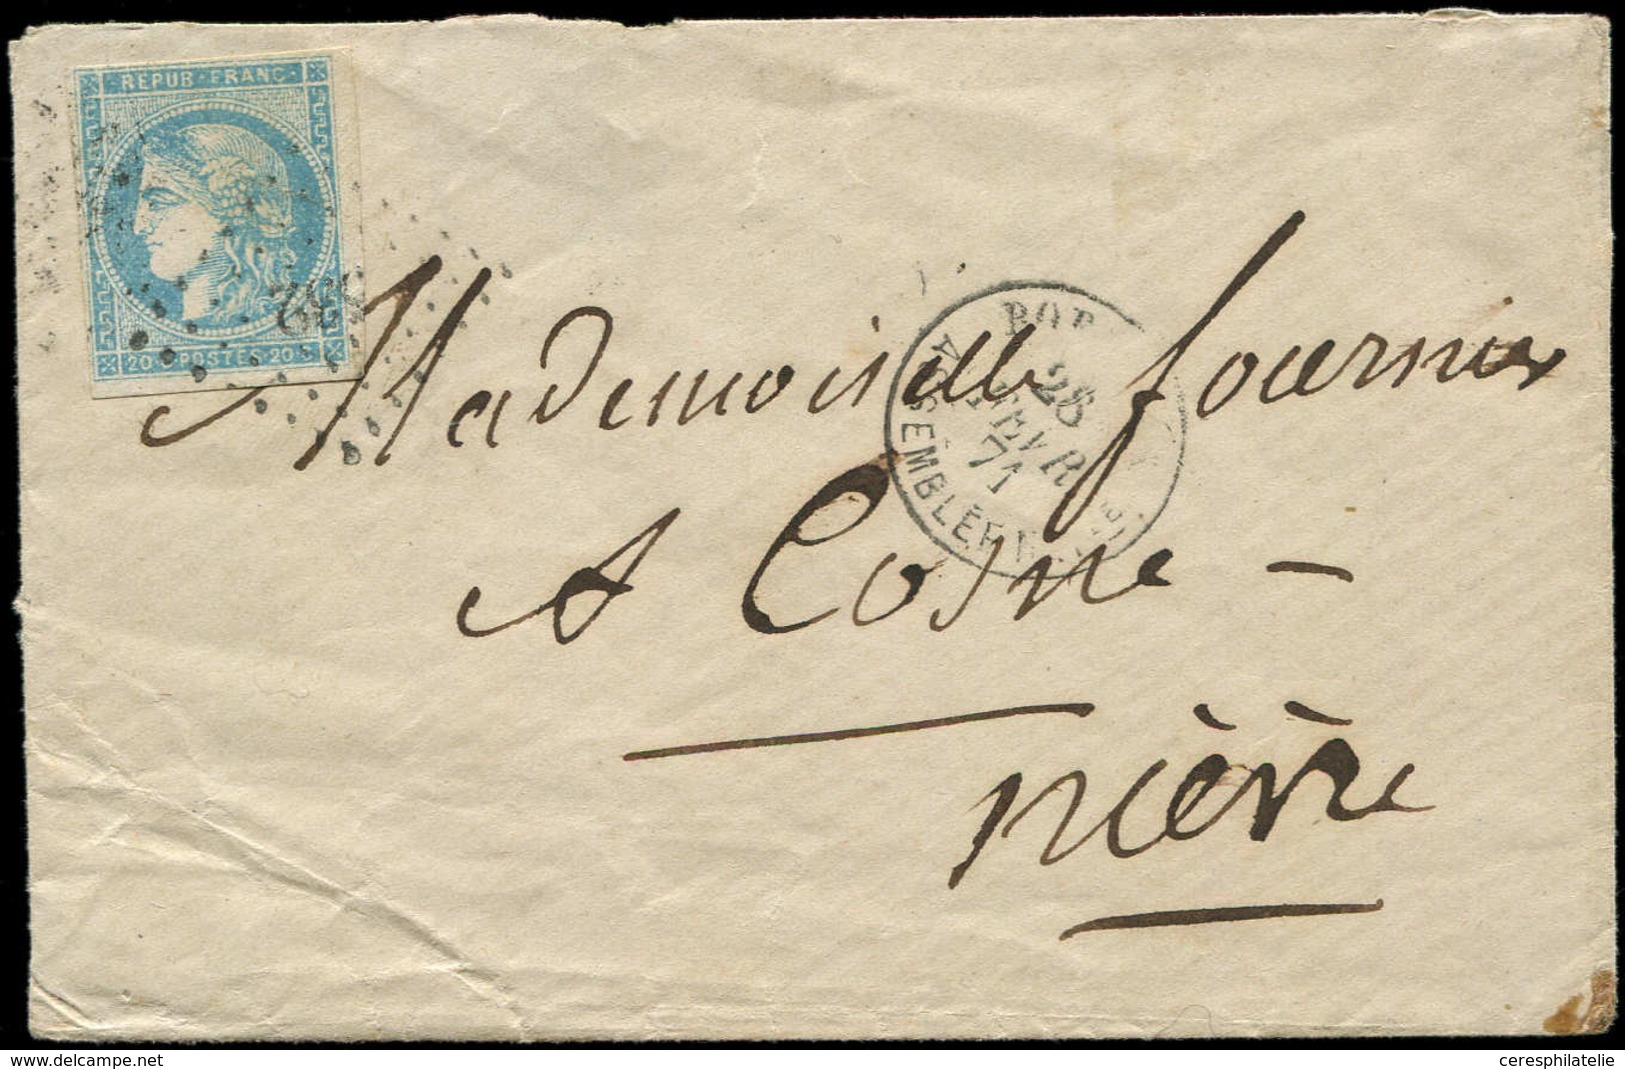 REPUB·FRANC·
20 C POSTES·20 C
Mademoiselle fournier
BOR
28
FEVR
71
ASSEMBLEE N
A Cosne –
nièvre
www.delcampe.net
ceresphilatelie